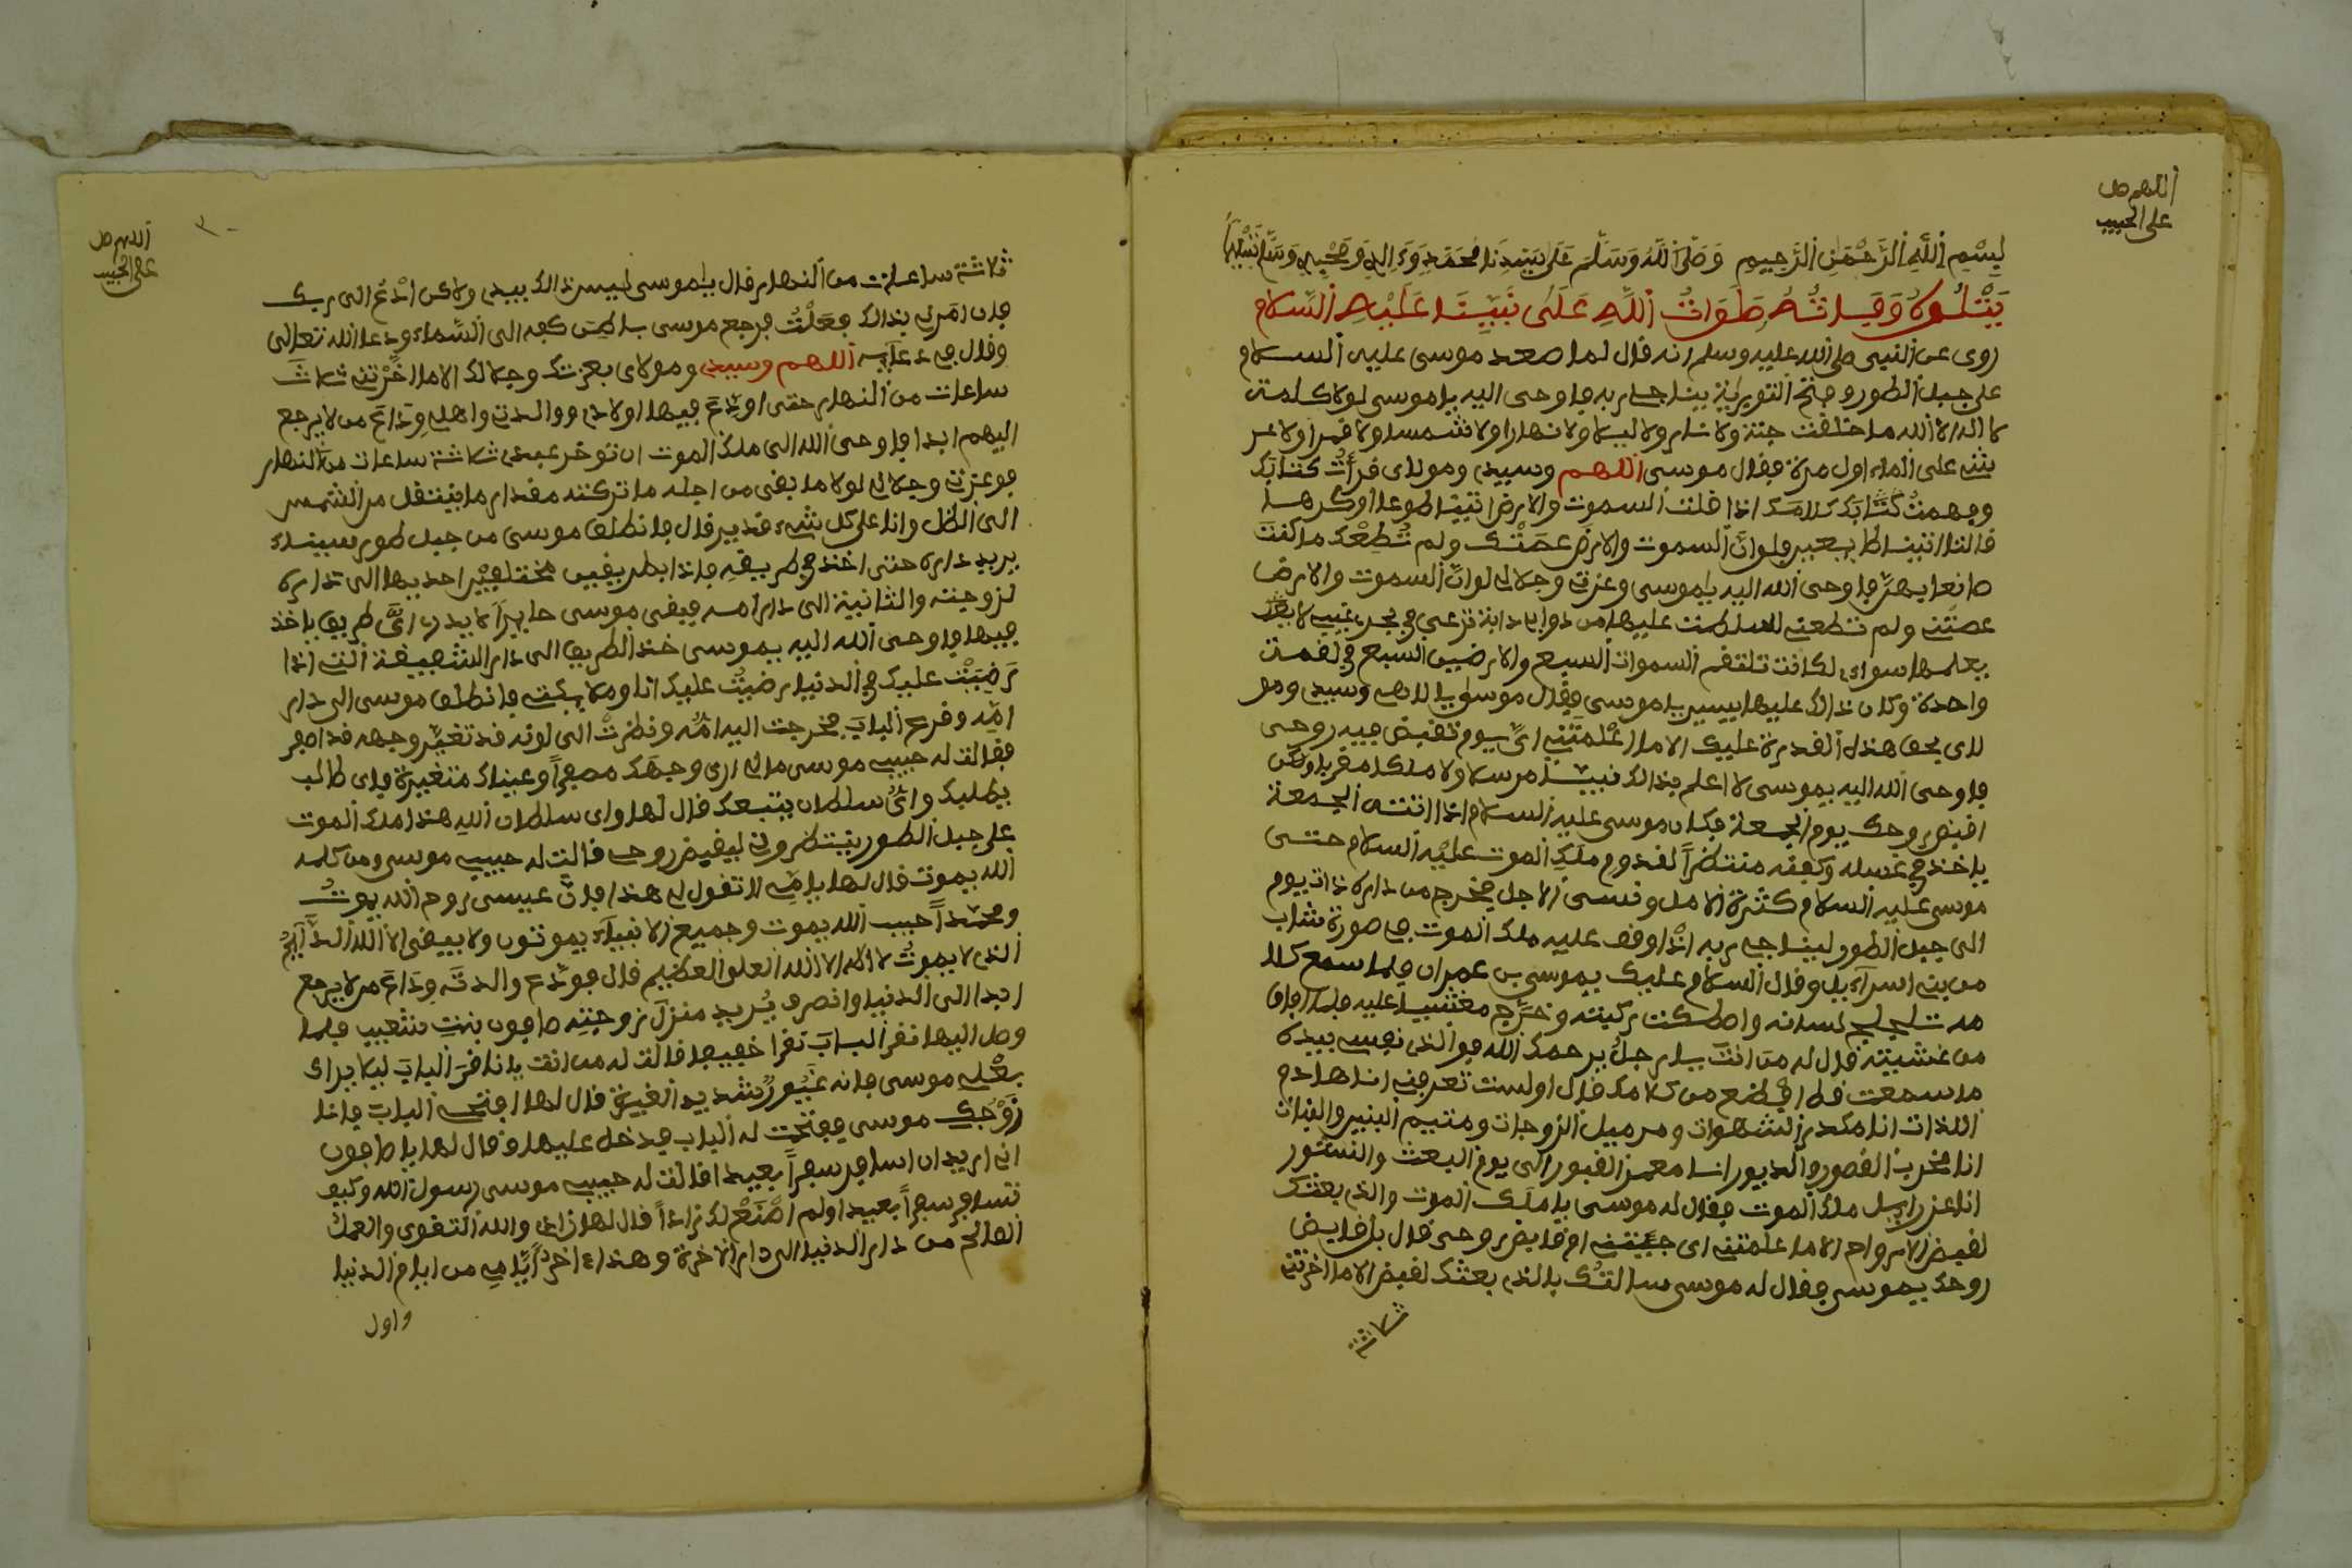 اللهم صل
على الحبيب
بِسْمِ اللَّهِ الرَّحْمَنِ الرَّحِيمِ وَصَلَّى اللَّهُ وَسَلَّمَ عَلَى سَيِّدِنَا مُحَمَّدٍ وَءَالِهِ وَصَحْبِهِ وَسَلَّمَ تَسْلِيمًا
يَتْلُوهُ وَفَاتُهُ صَلَوَاتُ اللَّهِ عَلَى نَبِيِّنَا عَلَيْهِ السَّلَام
روى عن النبي صلى الله عليه وسلم انه قال لما صعد موسى عليه السلام
على جبل الطور وفتح التورية يناجى ربه فاوحى اليه ياموسى لولا كلمت
لا اله الا الله ما خلقت جنة ولا نار ولا ليلا ولا نهارا ولا شمسا ولا قمرا ولا عر
شي على الماء اول مرة فقال موسى اللهم وسيدى ومولاى قرأت كتابك
وفهمت كتابك كلامك اذا قلت السموت والارض اتيتا طوعا او كرها
قالتا اتينا طايعين فلو ان السموت والارض عصتك ولم تطعك ما كنت
صانعا بهن فاوحى الله اليه ياموسى وعزتي وجلالي لو ان السموت والارض
عصتني ولم تطعني لسلطت عليها من دوابي دابة ترعى في بحر غيب لا يعلم
يعلمها سواى لكانت تلتقم السموات السبع والارضين السبع في لقمت
واحدة وكان ذالك عليها يسير ياموسى فقال موسى يا اللهم وسيدى ومو
لاى بحق هذه القدرة عليك الا ما اعلمتني اى يوم تقبض فيه روحى
فاوحى الله اليه يموسى لا اعلم بذالك نبيا مرسلا ولا ملكا مقربا ولكن
اقبض روحك يوم الجمعة فكان موسى عليه السلام اذا اتته الجمعة
ياخذ في غسله وكفنه منتظراً لقدوم ملك الموت عليه السلام حتى
موسى عليه السلام كثرة الامل ونسى الاجل فخرج من داره ذات يوم
الى جبل الطور ليناجى ربه اذا وقف عليه ملك الموت في صورة شاب
من بني اسراءيل وقال السلام عليك يموسى بن عمران فلما سمع كلا
مه تلجلج لسانه واصطكت ركبته وخر مغشيا عليه فلما افاق
من غشيته قال له من انت يا رجل يرحمك الله فو الذى نفسي بيده
ما سمعت قط افظع من كلامك قال اولست تعرفني انا هادم
اللذات انا مكدر الشهوات ومرميل الزوجات وميتم البنين والبنات
انا مخرب القصور والديور انا معمر القبور الى يوم البعث والنشور
انا عزراييل ملك الموت فقال له موسى يا ملك الموت والذى بعثك
لقبض الارواح الا ما علمتني اى جيتني ام قابض روحى قال بل قابض
روحك يموسى فقال له موسى سالتك بالذى بعثك لقبض الا ما اخرتني
ثلاثة
اللهم صل
على الحبيب
ثلاثة ساعات من النهار قال ياموسى ليس ذالك بيدى ولاكن ادع الى ربك
فان امرني بذالك فعلت فرجع موسى باطن كفه الى السماء ودعا الله تعالى
وقال في دعايه اللهم وسيدى ومولاى بعزتك وجلالك الا ما اخرتني ثلاث
ساعات من النهار حتى اودع فيها اولادى ووالدتي واهلي وداع من لا يرجع
اليهم ابدا فاوحى الله الى ملك الموت ان توخر عبدى ثلاثة ساعات من النهار
فوعزتي وجلالي لولا ما بقى من اجله ما تركته مقدار ما ينتقل من الشمس
الى الظل وانا على كل شيء قدير قال فانطلق موسى من جبل طور سيناء
يريد داره حتى اخذ في طريقه فاذا بطريقين مختلفين احديها الى داره
لزوجته والثانية الى دار امه فبقى موسى حايراً لا يدرى اى طريق ياخذ
فيها فاوحى الله اليه يموسى خذ الطريق الى دار الشفيقة التي اذا
رضيت عليك في الدنيا رضيت عليك انا وملايكتي فانطلق موسى الى دار
امه وقرع الباب فخرجت اليه امه ونظرت الى لونه قد تغير وجهه قد اصفر
فقالت له حبيبي موسى مالي ارى وجهك مصفراً وعيناك متغيرة فاى طالب
يطلبك واى سلطان يتبعك قال لها واى سلطان الله هذا ملك الموت
على جبل الطور ينتظروني ليقبض روحي قالت له حبيبي موسى ومن كلمه
الله يموت قال لها يا امي لا تقول لي هذا فان عيسى روح الله يموت
ومحمداً حبيب الله يموت وجميع الانبياء يموتون ولا يبقى الا الله الدايم
الذى لا يموت لا اله الا الله العلى العظيم قال فودع والدته وداع من لا يرجع
ابدا الى الدنيا وانصرف يريد منزل زوجته صافون بنت شعيب فلما
وصل اليها نقر الباب نقرا خفيفا قالت له من انت يا ناقر الباب ليلا يراك
بعلي موسى فانه غيور شديد الغيرة قال لها افتحي الباب فانا
زوجك موسى ففتحت له الباب فدخل عليها وقال لها يا صافون
اني اريد ان اسافر سفراً بعيدا قالت له حبيبي موسى رسول الله وكيف
تسافر سفراً بعيدا ولم اصنع لك زاداً قال لها زادى والله التقوى والعمل
الصالح من دار الدنيا الى دار الاخرة وهذا ءاخر ايامي من ايام الدنيا
واول